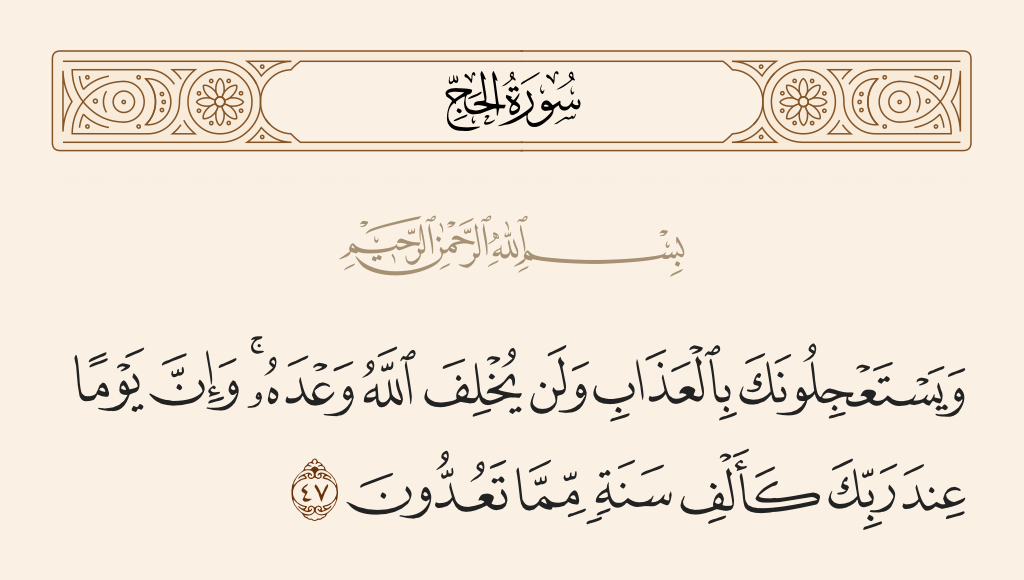 سُورَةُ الحَجِّ
بِسْمِ ٱللَّهِ ٱلرَّحْمَٰنِ ٱلرَّحِيمِ
وَيَسْتَعْجِلُونَكَ بِٱلْعَذَابِ وَلَن يُخْلِفَ ٱللَّهُ وَعْدَهُۥ ۚ وَإِنَّ يَوْمًا
عِندَ رَبِّكَ كَأَلْفِ سَنَةٍ مِّمَّا تَعُدُّونَ ٤٧